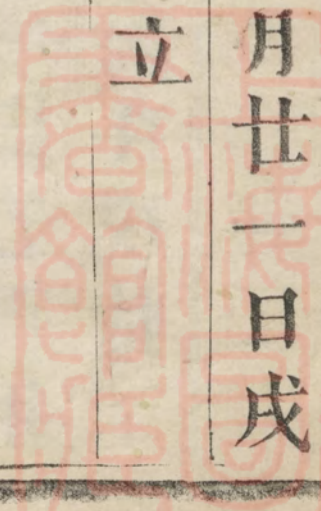 月廿一日戌
立